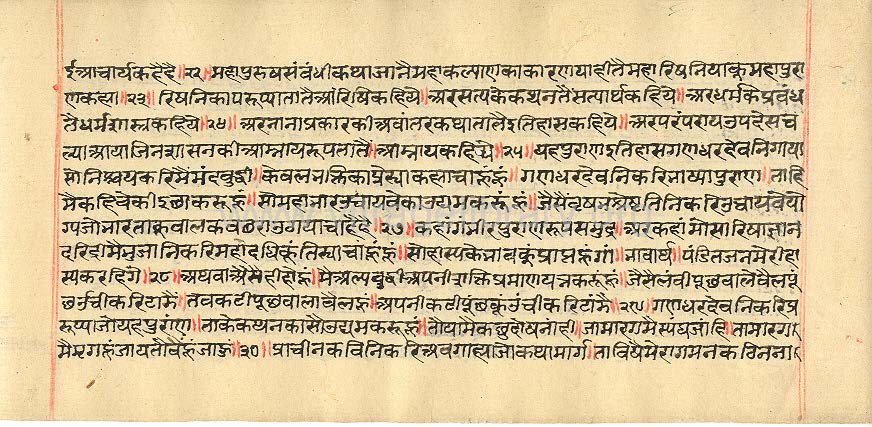 ईआचार्यकहैहै॥२२॥महापुरुषसंबंधीकथाजानैमहाकल्याणकाकारणयाहीतैमहारिषिनियाकूमहापुरा
णकह्या॥२३॥रिषिनिकाप्ररूप्यातातैआर्षिकहिये॥अरसत्यकेकथनतैसत्यार्थकहिये॥अरधर्मकेप्रबंध
तैधर्मशास्त्रकहिये॥२४॥अरनानाप्रकारकीअवांतरकथातातैइतिहासकहिये॥अरपरंपरायउपदेसच
ल्याआयाजिनशासनकीआम्नायरूपतातैआम्नायकहिये॥२५॥यहपुराणइतिहासगणधरदेवनिगाया
सोनिश्चयकरिमैमंदबुद्धी॥केवलभक्तिकाप्रेस्याकह्याचाहूंहूं॥गणधरदेवनिकरिभाष्यापुराण॥ताहि
मैकहिवेकीइछाकरूहूं॥सोमहाभारउचायवेकाउद्यमकरूंहूं॥जैसैंवृषभश्रेष्ठनिनिकरिउचायवेयो
ग्यजोभारताकूंबालकबछराउठायाचाहैहै॥२७॥कहांगंभीरपुराणरूपसमुद्र॥अरकहांमोसारिषाज्ञान
दरिद्रीमैभुजानिकरिमहोदधिकूंतिस्याचाहूंहूं॥सोहास्यकेपात्रपणाकूंप्राप्तहूंगा॥भावार्थ॥पंडितजनमेरीहा
स्यकरहिगे॥२८॥अथवाअैसेहीहोहूं॥मैअल्पबुद्धीअपनीशक्तिप्रमाणयत्नकरूंहूं॥जैसैलंबीपूंछवालेबैलपूं
छऊंचीकरिटामैं॥तैवकटीपूछवालाबैलहूं॥अपनीकटीपूछकूंऊंचीकरिटामै॥२९॥गणधरदेवनिकरिप्र
रूप्याजोयहपुराण॥ताकेकथनकासौउद्यमकरूहूं॥तौयामेकछुदोषनाही॥जामारगमैस्यंघजांहि॥तामारग
मैमृगहूंजायतौवैहूंजाहु॥३०॥प्राचीनकविनिकरिअवगाह्याजोकथामार्ग॥ताविषैमेरागमनकठिननां